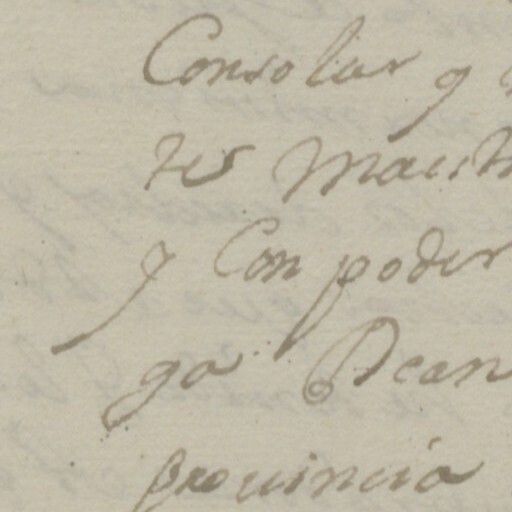 Consolar y
tes Maest
y Con poder
ga Dean
prouincia